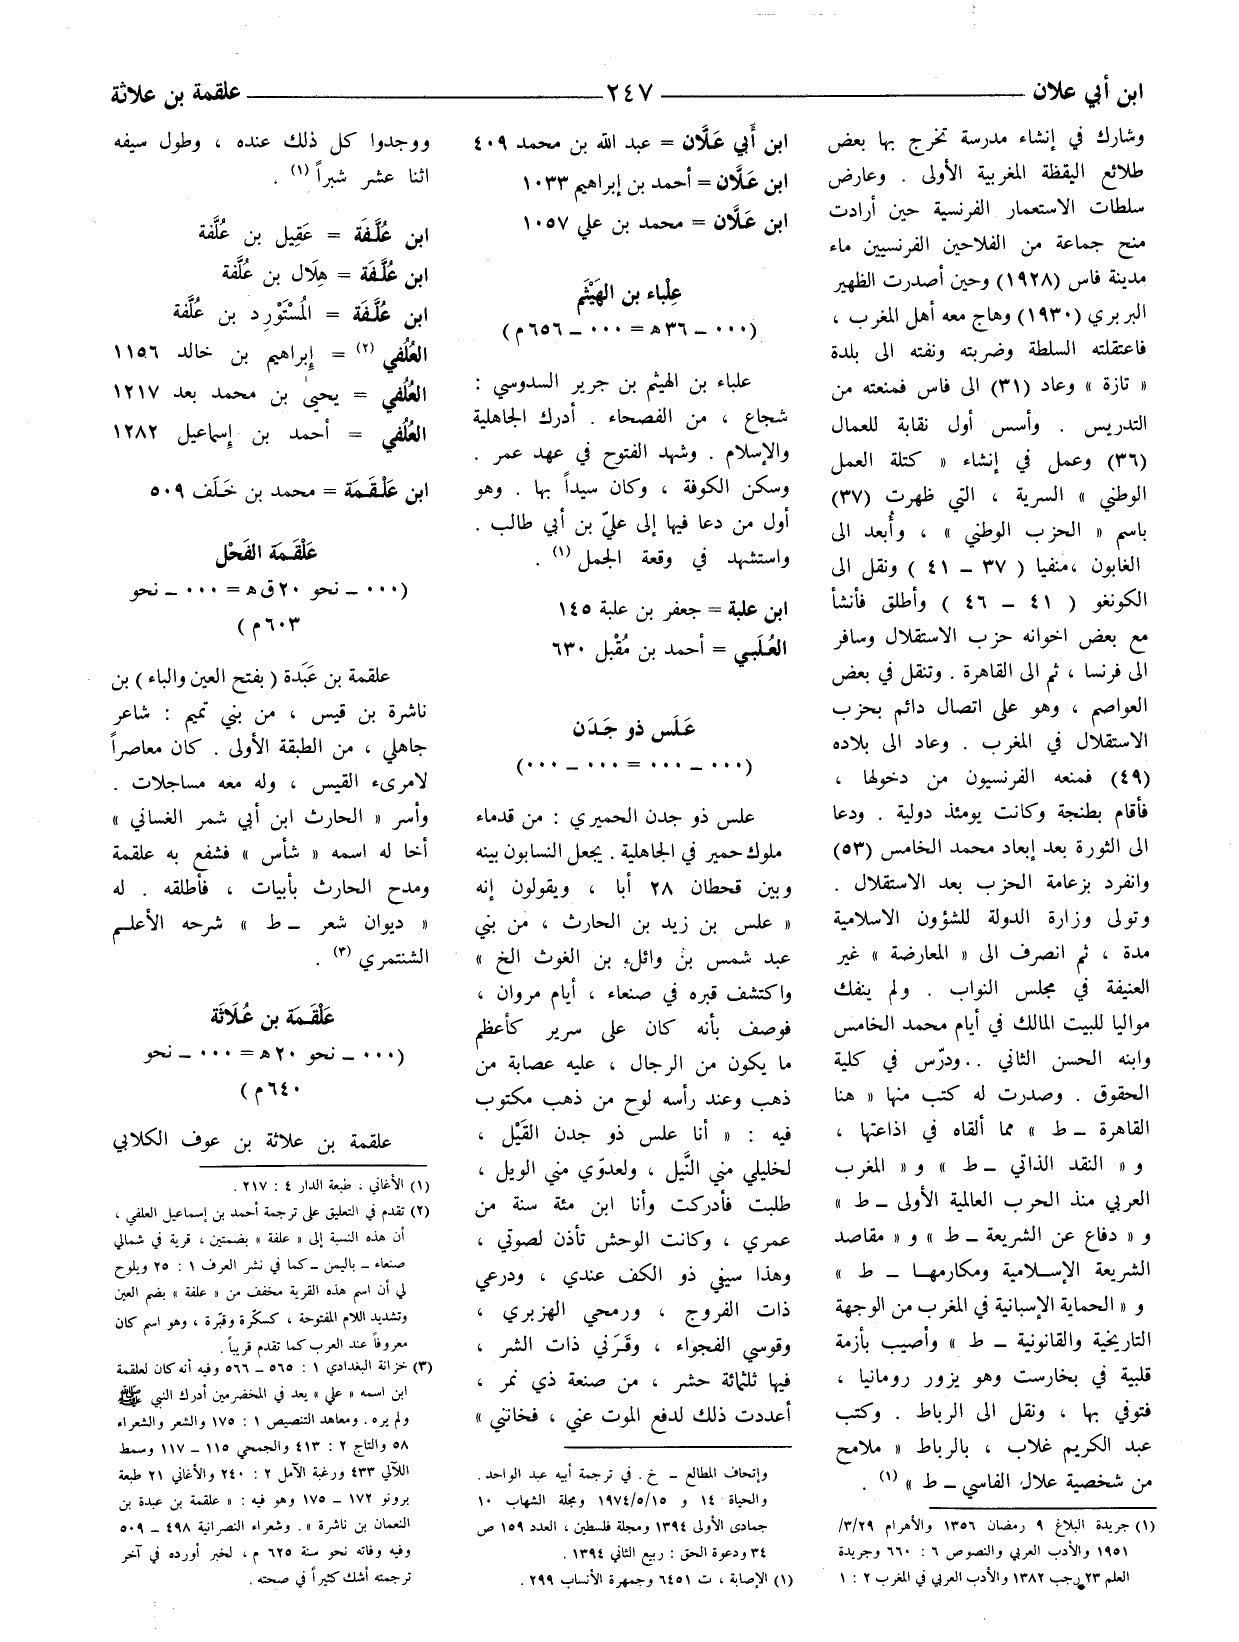 ابن أبي علان ـــ ٢٤٧ ـــ علقمة بن علاثة
وشارك في إنشاء مدرسة تخرج بها بعض
طلائع اليقظة المغربية الأولى . وعارض
سلطات الاستعمار الفرنسية حين أرادت
منح جماعة من الفلاحين الفرنسيين ماء
مدينة فاس (١٩٢٨) وحين أصدرت الظهير
البربري (١٩٣٠) وهاج معه أهل المغرب ،
فاعتقلته السلطة وضربته ونفته الى بلدة
« تازة » وعاد (٣١) الى فاس فمنعته من
التدريس . وأسس أول نقابة للعمال
(٣٦) وعمل في إنشاء « كتلة العمل
الوطني » السرية ، التي ظهرت (٣٧)
باسم « الحزب الوطني » ، وأُبعد الى
الغابون ،منفيا ( ٣٧ – ٤١ ) ونقل الى
الكونغو ( ٤١ – ٤٦ ) وأطلق فأنشأ
مع بعض اخوانه حزب الاستقلال وسافر
الى فرنسا ، ثم الى القاهرة . وتنقل في بعض
العواصم ، وهو على اتصال دائم بحزب
الاستقلال في المغرب . وعاد الى بلاده
(٤٩) فمنعه الفرنسيون من دخولها ،
فأقام بطنجة وكانت يومئذ دولية . ودعا
الى الثورة بعد إبعاد محمد الخامس (٥٣)
وانفرد بزعامة الحزب بعد الاستقلال .
وتولى وزارة الدولة للشؤون الاسلامية
مدة ، ثم انصرف الى « المعارضة » غير
العنيفة في مجلس النواب . ولم ينفك
مواليا للبيت المالك في أيام محمد الخامس
وابنه الحسن الثاني . . ودرّس في كلية
الحقوق . وصدرت له كتب منها « هنا
القاهرة – ط » مما ألقاه في اذاعتها ،
و « النقد الذاتي – ط » و « المغرب
العربي منذ الحرب العالمية الأولى – ط »
و « دفاع عن الشريعة – ط » و « مقاصد
الشريعة الإسلامية ومكارمها – ط »
و « الحماية الإسبانية في المغرب من الوجهة
التاريخية والقانونية – ط » وأصيب بأزمة
قلبية في بخارست وهو يزور رومانيا ،
فتوفي بها ، ونقل الى الرباط . وكتب
عبد الكريم غلاب ، بالرباط « ملامح
من شخصية علال الفاسي – ط » (١) .
(١) جريدة البلاغ ٩ رمضان ١٣٥٦ والأهرام ٣/٢٩/
١٩٥١ والأدب العربي والنصوص ٦ : ٦٦٠ وجريدة
العلم ٢٣ رجب ١٣٨٢ والأدب العربي في المغرب ٢ : ١
ابن أَبي عَلَّان = عبد الله بن محمد ٤٠٩
ابن عَلَّان = أحمد بن إبراهيم ١٠٣٣
ابن عَلَّان = محمد بن علي ١٠٥٧
عِلْباء بن الهَيْثَم
(٠٠٠ – ٣٦ ه = ٠٠٠ – ٦٥٦ م)
علباء بن الهيثم بن جرير السدوسي :
شجاع ، من الفصحاء . أدرك الجاهلية
والإسلام . وشهد الفتوح في عهد عمر .
وسكن الكوفة ، وكان سيداً بها . وهو
أول من دعا فيها إلى عليّ بن أبي طالب .
واستشهد في وقعة الجمل (١) .
ابن علبة = جعفر بن علبة ١٤٥
العُلَبي = أحمد بن مُقْبل ٦٣٠
عَلَس ذو جَدَن
(٠٠٠ – ٠٠٠ = ٠٠٠ – ٠٠٠)
علس ذو جدن الحميري : من قدماء
ملوك حمير في الجاهلية . يجعل النسابون بينه
وبين قحطان ٢٨ أبا ، ويقولون إنه
« علس بن زيد بن الحارث ، من بني
عبد شمس بن وائل، بن الغوث الخ »
واكتشف قبره في صنعاء ، أيام مروان ،
فوصف بأنه كان على سرير كأعظم
ما يكون من الرجال ، عليه عصابة من
ذهب وعند رأسه لوح من ذهب مكتوب
فيه : « أنا علس ذو جدن القَيْل ،
لخليلي مني النَّيل ، ولعدوّي مني الويل ،
طلبت فأدركت وأنا ابن مئة سنة من
عمري ، وكانت الوحش تأذن لصوتي ،
وهذا سيفي ذو الكف عندي ، ودرعي
ذات الفروج ، ورمحي الهزبري ،
وقوسي الفجواء ، وقَرَني ذات الشر ،
فيها ثلثمائة حشر ، من صنعة ذي نمر ،
أعددت ذلك لدفع الموت عني ، فخانني »
وإتحاف المطالع – خ . في ترجمة أبيه عبد الواحد .
والحياة ١٤ و ١٩٧٤/٥/١٥ ومجلة الشهاب ١٠
جمادى الأولى ١٣٩٤ ومجلة فلسطين ، العدد ١٥٩ ص
٣٤ ودعوة الحق : ربيع الثاني ١٣٩٤ .
(١) الإصابة ، ت ٦٤٥١ وجمهرة الأنساب ٢٩٩ .
ووجدوا كل ذلك عنده ، وطول سيفه
اثنا عشر شبراً (١) .
ابن عُلَّفَة = عَقِيل بن عُلَّفة
ابن عُلَّفَة = هِلَال بن عُلَّفة
ابن عُلَّفَة = المُسْتَوْرِد بن عُلَّفة
العُلُفي (٢) = إبراهيم بن خالد ١١٥٦
العُلُفي = يحيى بن محمد بعد ١٢١٧
العُلُفي = أحمد بن إسماعيل ١٢٨٢
ابن عَلْقَمَة = محمد بن خَلَف ٥٠٩
عَلْقَمَة الفَحْل
(٠٠٠ – نحو ٢٠ ق ه = ٠٠٠ – نحو
٦٠٣ م )
علقمة بن عَبَدة ( بفتح العين والباء ) بن
ناشرة بن قيس ، من بني تميم : شاعر
جاهلي ، من الطبقة الأولى . كان معاصراً
لامرىء القيس ، وله معه مساجلات .
وأسر « الحارث ابن أبي شمر الغساني »
أخا له اسمه « شأس » فشفع به علقمة
ومدح الحارث بأبيات ، فأطلقه . له
« ديوان شعر – ط » شرحه الأعلم
الشنتمري (٣) .
عَلْقَمَة بن عُلَاثَة
(٠٠٠ – نحو ٢٠ ه = ٠٠٠ – نحو
٦٤٠ م )
علقمة بن علاثة بن عوف الكلابي
(١) الأغاني ، طبعة الدار ٤ : ٢١٧ .
(٢) تقدم في التعليق على ترجمة أحمد بن إسماعيل العلفي ،
أن هذه النسبة إلى « علفة » بضمتين ، قرية في شمالي
صنعاء – باليمن – كما في نشر العرف ١ : ٢٥ ويلوح
لي أن اسم هذه القرية مخفف من « علفة » بضم العين
وتشديد اللام المفتوحة ، كسكّرة وقبّرة ، وهو اسم كان
معروفاً عند العرب كما تقدم قريباً .
(٣) خزانة البغدادي ١ : ٥٦٥ – ٥٦٦ وفيه أنه كان لعلقمة
ابن اسمه « علي » يعد في المخضرمين أدرك النبي ﷺ
ولم يره . ومعاهد التنصيص ١ : ١٧٥ والشعر والشعراء
٥٨ والتاج ٢ : ٤١٣ والجمحي ١١٥ – ١١٧ وسمط
اللآلي ٤٣٣ ورغبة الآمل ٢ : ٢٤٠ والأغاني ٢١ طبعة
برونو ١٧٢ – ١٧٥ وهو فيه : « علقمة بن عبدة بن
النعمان بن ناشرة » . وشعراء النصرانية ٤٩٨ – ٥٠٩
وفيه وفاته نحو سنة ٦٢٥ م ، لخبر أورده في آخر
ترجمته أشك كثيراً في صحته .